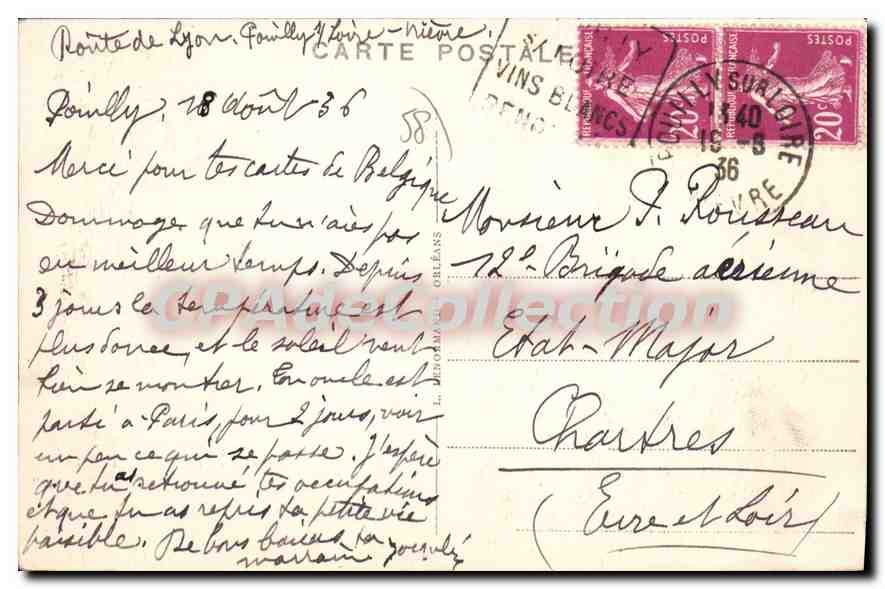 Route de Lyon. Pouilly s/ Loire - Nièvre.
CARTE POSTALE
Pouilly, 18 Août 36
58
Merci pour tes cartes de Belgique
Dommage que tu n'aies pas
eu meilleur temps. Depuis
3 jours la température est
plus douce, et le soleil veut
bien se montrer. Ton oncle est
parti à Paris, pour 2 jours, voir
un peu ce qui se passe. J'espère
que tu as retrouvé tes occupations
et que tu as repris ta petite vie
paisible. De bons baisers ta
marraine
L. LENORMAND, ORLÉANS
VINS BLANCS
POSTES
RÉPUBLIQUE FRANÇAISE
20c
POSTES
RÉPUBLIQUE FRANÇAISE
20c
POUILLY SUR LOIRE
13 40
19 -8
36
NIÈVRE
Monsieur P. Rousseau
12e Brigade aérienne
État-Major
Chartres
(Eure et Loir)
CPAdeCollection